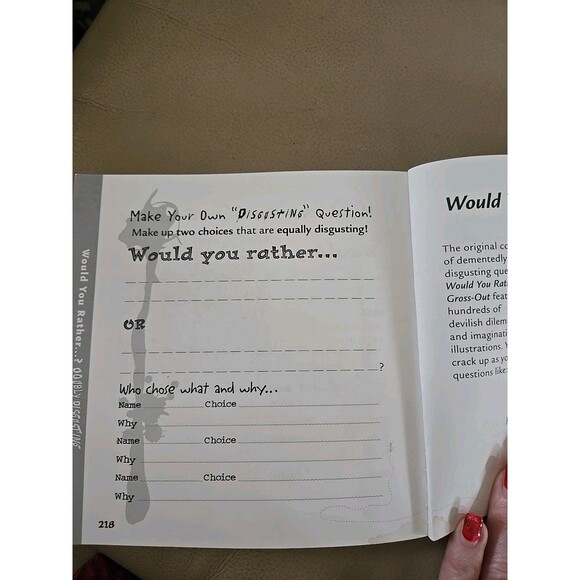 Would You Rather...? DOUBLY DISGUSTING
Make Your Own "DISGUSTING" Question!
Make up two choices that are equally disgusting!
Would you rather...
OR
?
Who chose what and why...
Name Choice
Why
Name Choice
Why
Name Choice
Why
218
Would
The original
of dementedly
disgusting
Would You
Gross-Out
hundreds of
devilish
and
illustrations.
crack up as
questions like: